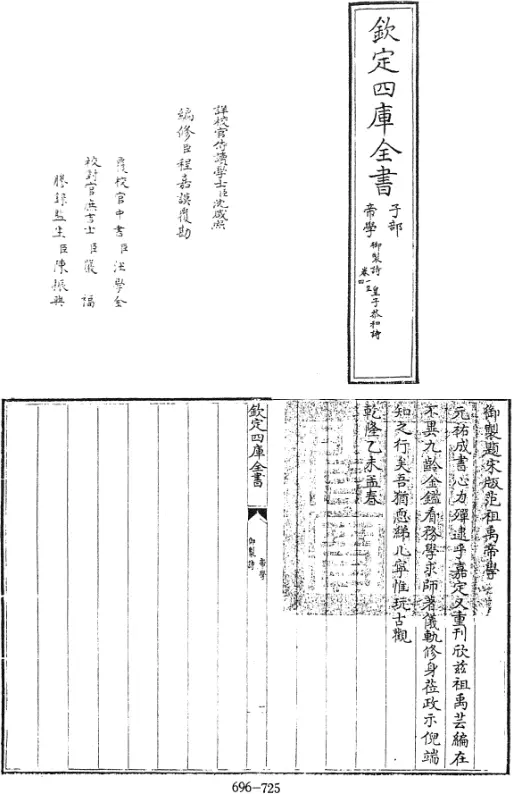 欽定四庫全書
子部
帝學
御製詩 皇子恭和詩
卷一至四
詳校官侍讀學士臣沈咸熙
編修臣程嘉謨覆勘
覆校官中書臣汪學金
校對官庶吉士臣
謄錄監生臣陳振興
御製題宋版范祖禹帝學
元祐成書心力殫逮乎嘉定又重刊欣兹祖禹芸編在
不異九齡金鑑看務學求師著儀軌修身莅政示倪端
知之行矣吾猶恧綈几寧惟玩古觀
乾隆乙未孟春
欽定四庫全書
帝學
御製詩
一
696-725